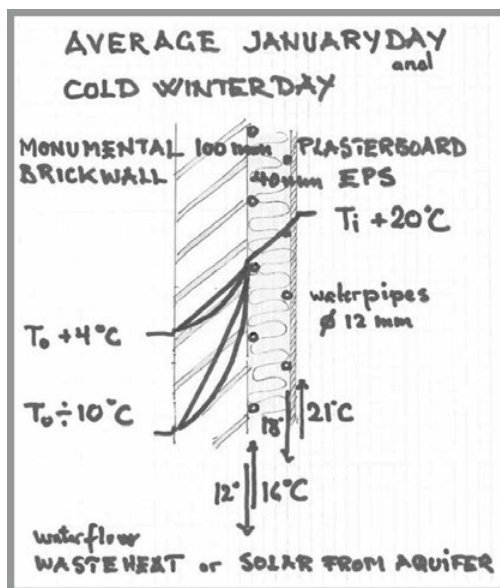 AVERAGE JANUARY DAY
and
COLD WINTERDAY
MONUMENTAL 100 mm PLASTERBOARD
BRICKWALL 40 mm EPS
Ti +20°C
waterpipes
ø 12 mm
To +4°C
To ÷10°C
18° 21°C
12° 16°C
waterflow
WASTE HEAT or SOLAR FROM AQUIFER